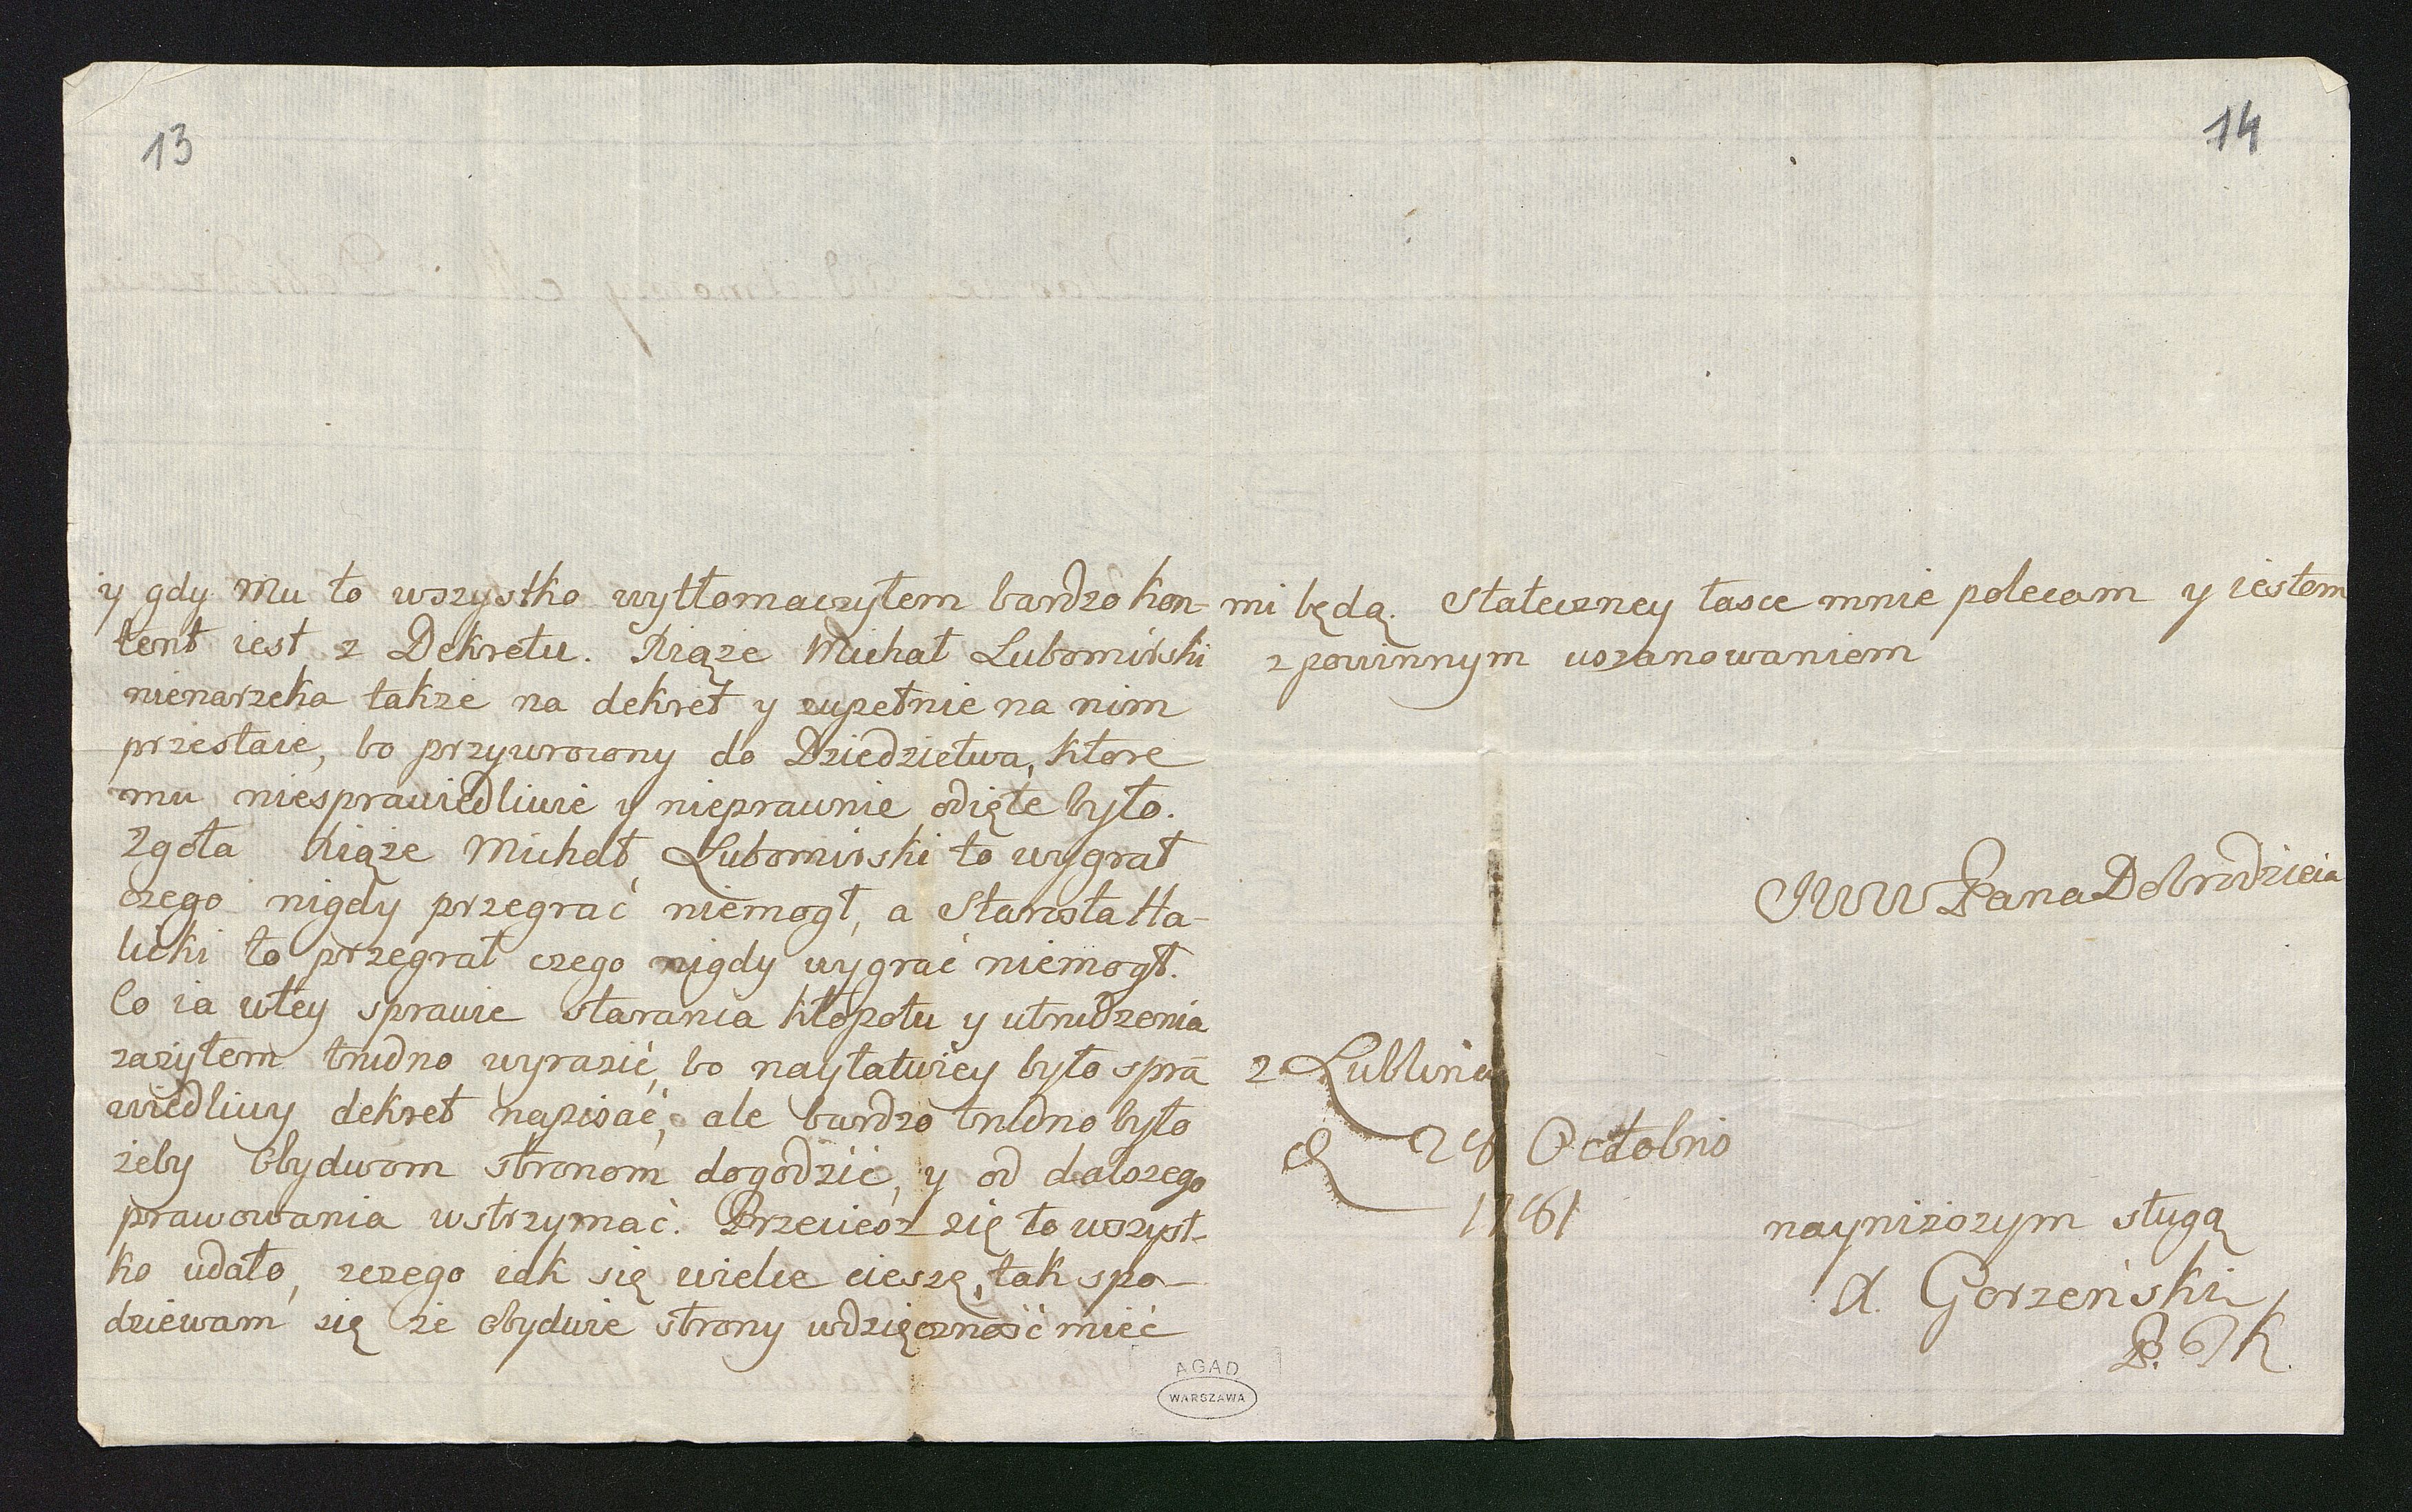 13
y gdy mu to wszystko wytłomaczyłem bardzo kon-
tent iest z Dekretu. Xiąże Michał Lubomirski
nienarzeka także na dekret y zupełnie na nim
przestaie, bo przywrocony do Dziedzictwa, ktore
mu niesprawiedliwie y nieprawnie odięte było.
Zgoła Xiąże Michał Lubomirski to wygrał
czego nigdy przegrać niemogł, a Starosta Ha-
licki to przegrał czego nigdy wygrać niemogł.
Co ia wtey sprawie starania kłopotu y utrudzenia
zażyłem trudno wyrazić, bo nayłatwiey było spra
wiedliwy dekret napisać, ale bardzo trudno było
żeby obydwom stronom dogodzić, y od dalszego
prawowania wstrzymać. Przecież się to wszyst-
ko udało, zczego iak się wielce cieszę, tak spo-
dziewam się że obydwie strony wdzięczność mieć
14
mi będą. Stateczney łasce mnie polecam y iestem
z powinnym uszanowaniem
JWW Pana Dobrodzieia
z Lublina
d 28 Octobris
1781
nayniższym sługą
A. Gorzeński
AGAD
WARSZAWA